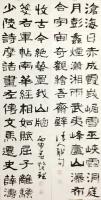 滄海日赤城霞峨嵋雪巫峽雲洞庭
月彭蠡煙瀟湘雨廣陵潮廬山瀑布
合宇宙奇觀繪吾齋壁
少陵詩摩詰畫左傳文馬遷史薛濤
箋右軍帖南華經相如賦屈子離騷
收古今絕藝置我山牕